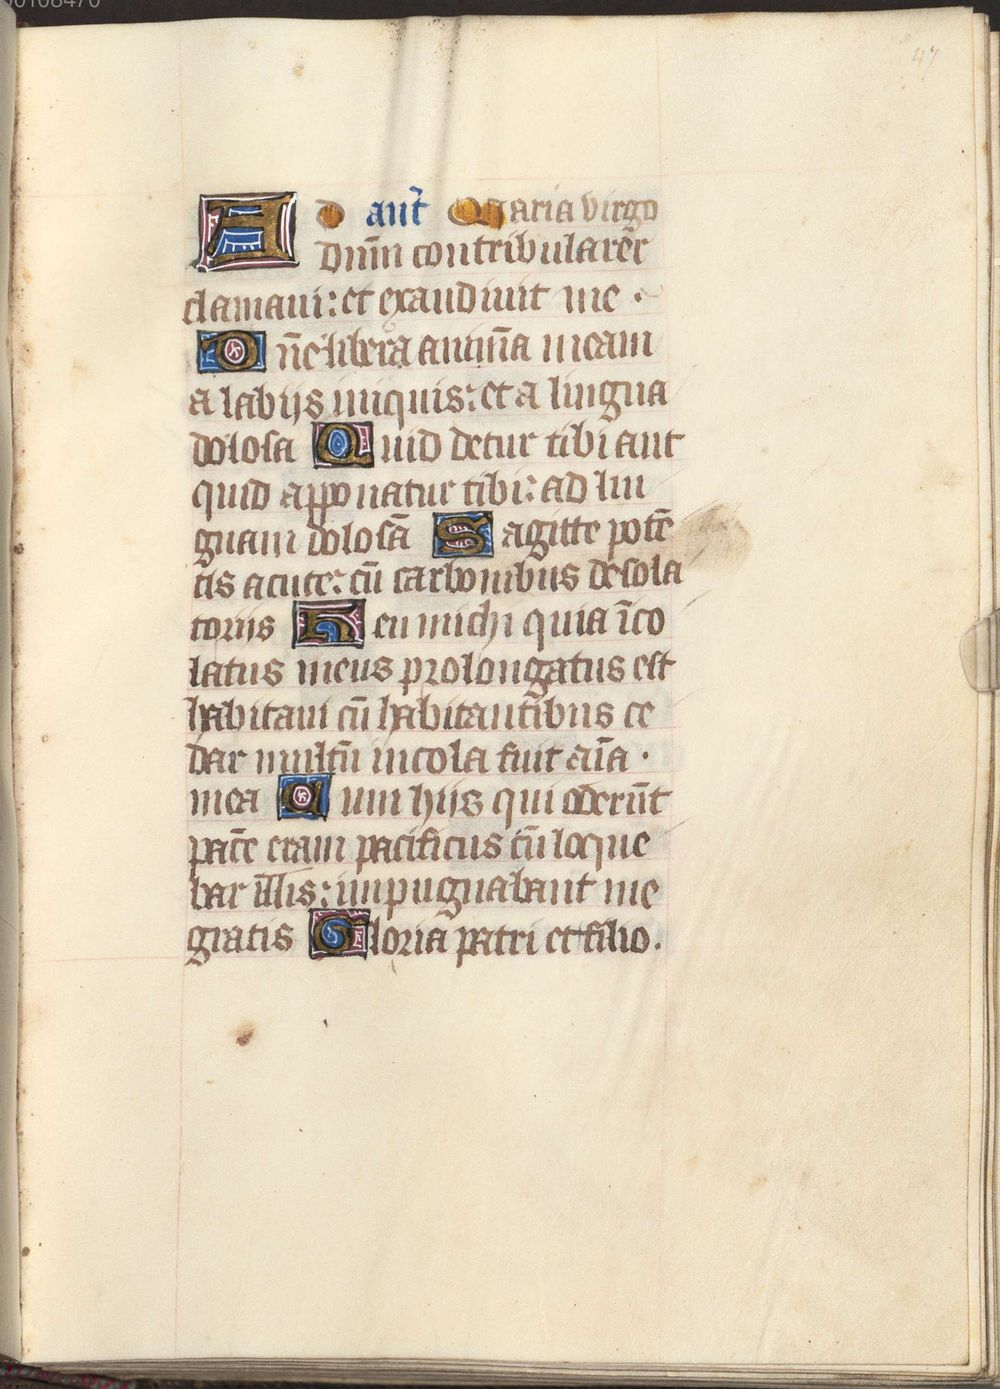 00108470
47
Ad ant̃ Maria virgo
Dn̄m contribularer̃
clamaui: et exaudiuit me
Dn̄e libera animā meam
a labijs iniquis: et a lingua
dolosa Quid detur tibi aut
quid apponatur tibi: ad lin
guam dolosā Sagitte potē
tis acute: cū carbonibus desola
torijs Heu michi quia īco
latus meus prolongatus est
habitaui cū habitantibus ce
dar multū incola fuit aīa ·
mea Cum hijs qui oderūt
pacē eram pacificus cū loque
bar illis: impugnabant me
gratis Gloria patri et filio.